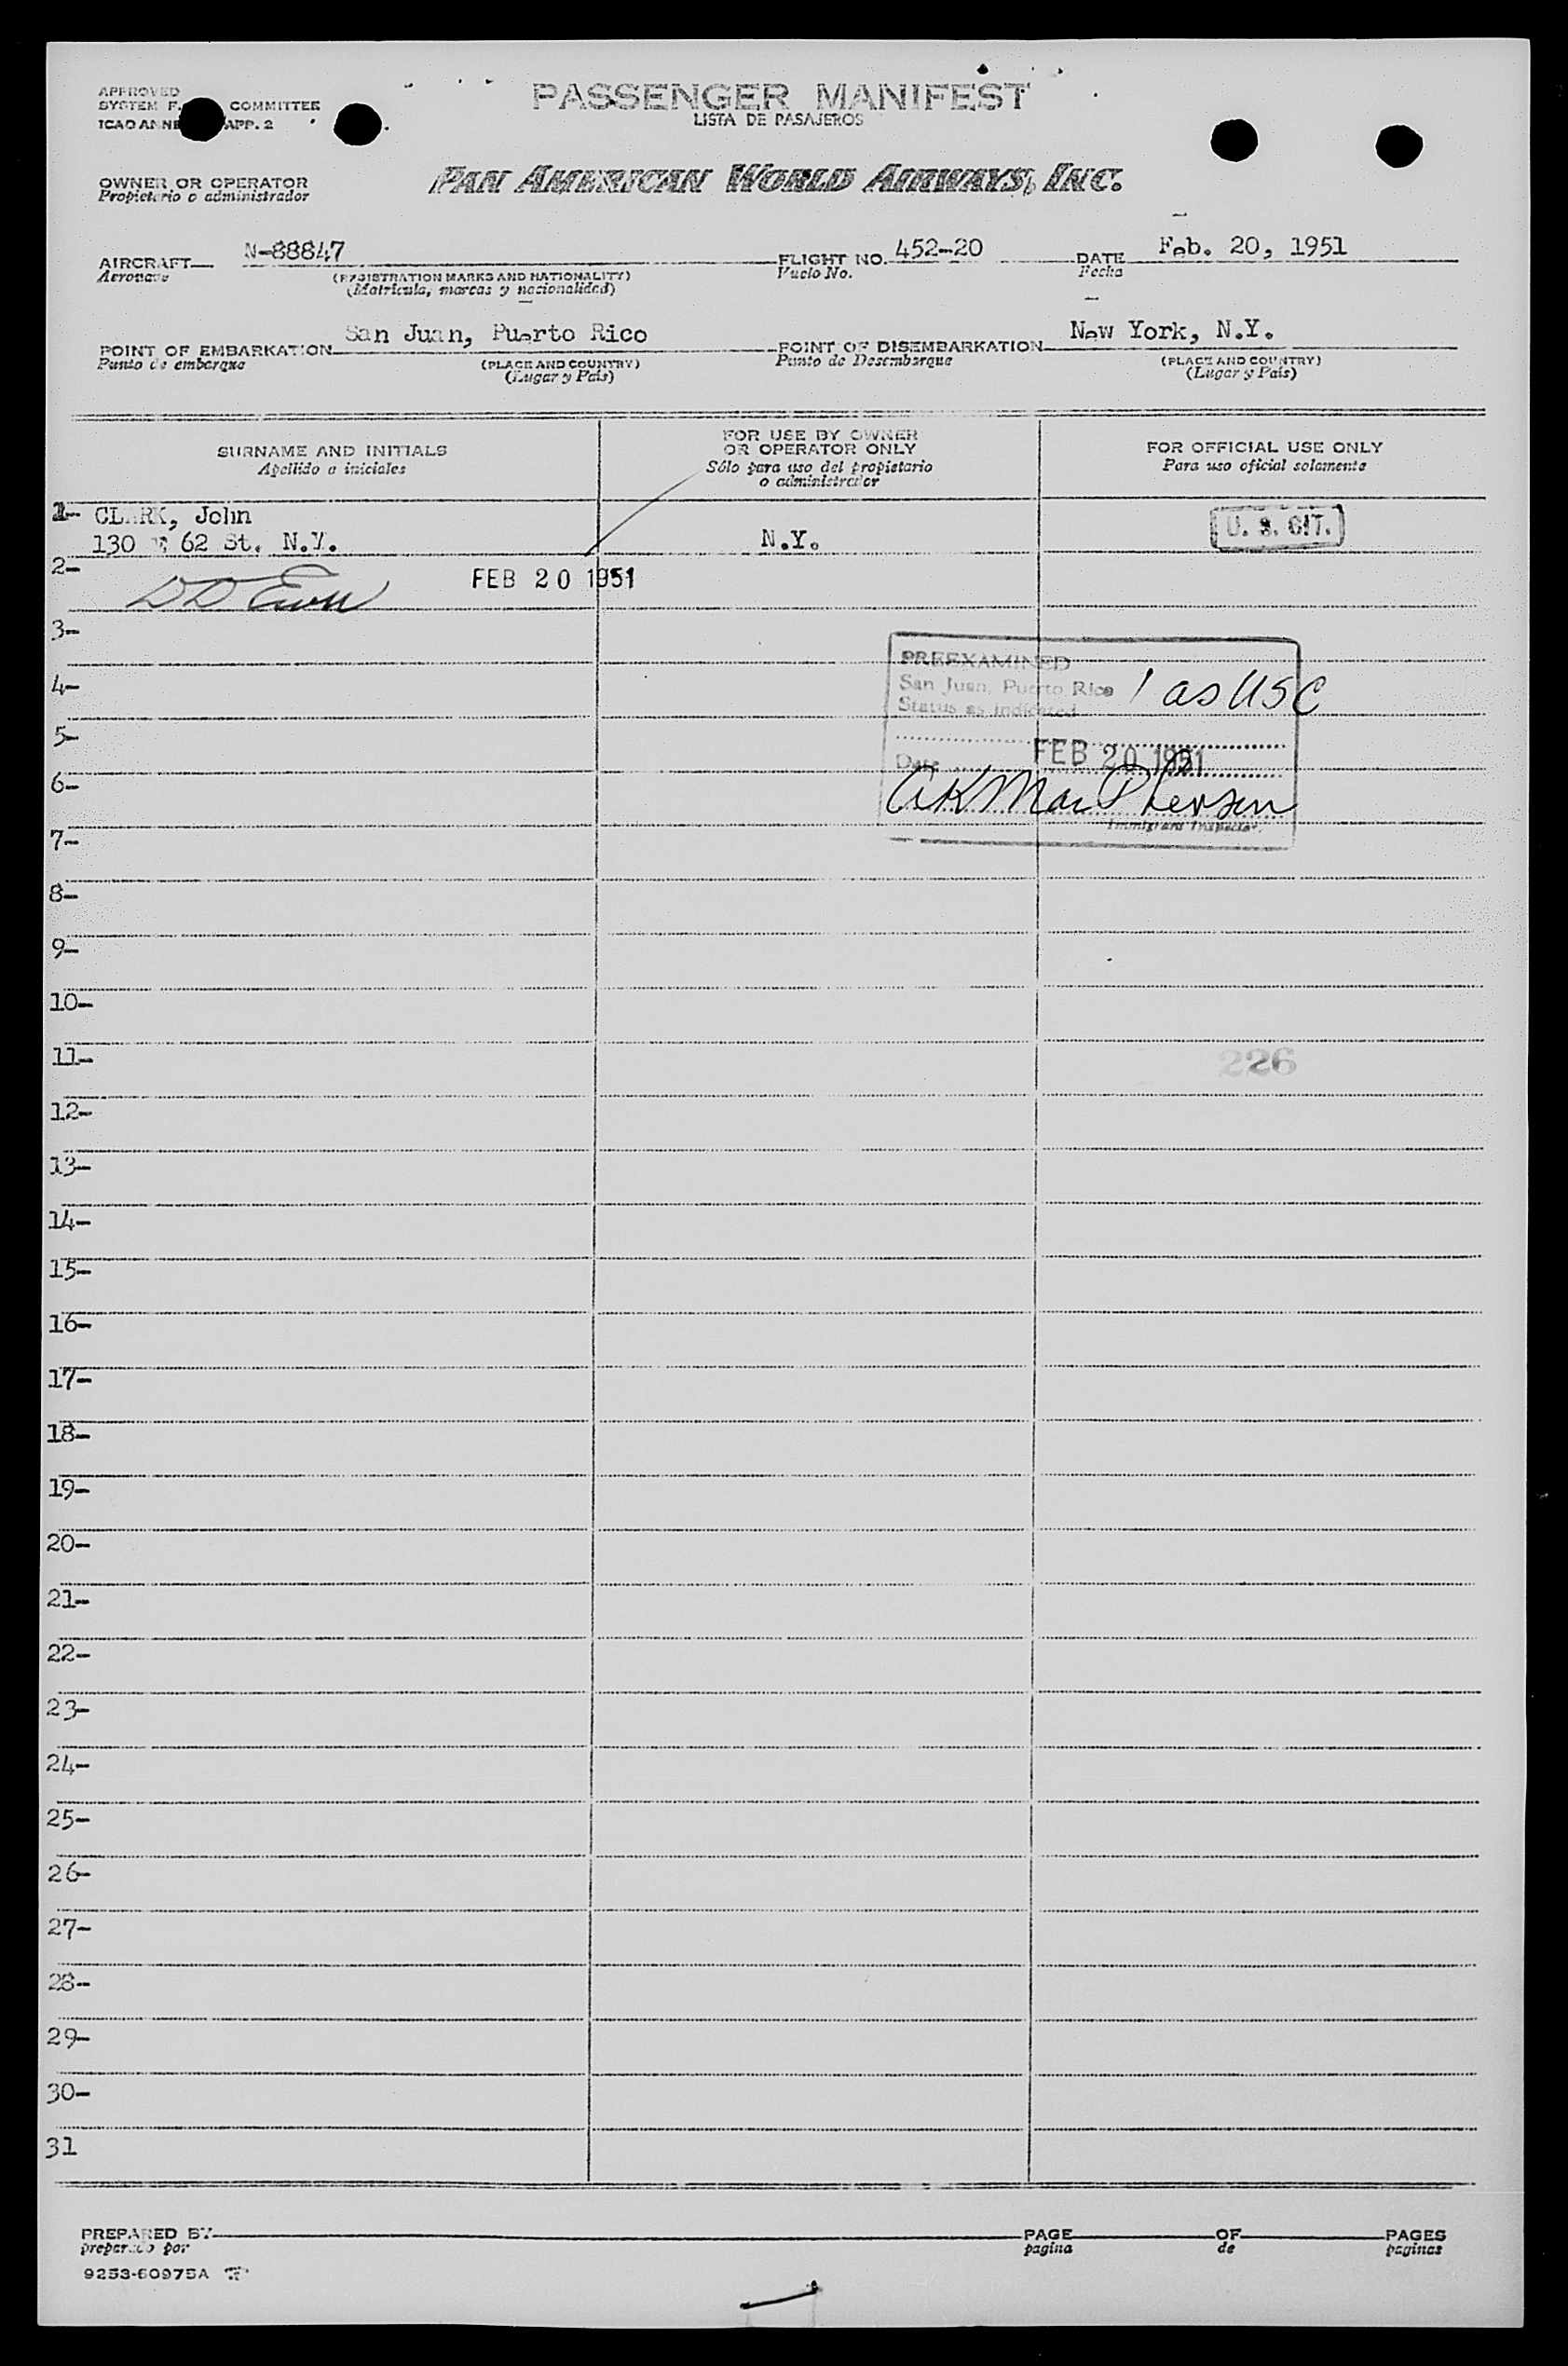 PASSENGER MANIFEST
LISTA DE PASAJEROS
APPROVED
SYSTEM F. COMMITTEE
ICAO ANNE APP. 2
OWNER OR OPERATOR
Propietario o administrador
PAN AMERICAN WORLD AIRWAYS, INC.
AIRCRAFT N-88847
Aeronave
(REGISTRATION MARKS AND NATIONALITY)
(Matricula, marcas y nacionalidad)
FLIGHT NO. 452-20
Vuelo No.
DATE Feb. 20, 1951
Fecha
POINT OF EMBARKATION San Juan, Puerto Rico
Punto de embarque
(PLACE AND COUNTRY)
(Lugar y País)
POINT OF DISEMBARKATION New York, N.Y.
Punto de Desembarque
(PLACE AND COUNTRY)
(Lugar y País)
SURNAME AND INITIALS
Apellido o iniciales
FOR USE BY OWNER
OR OPERATOR ONLY
Sólo para uso del propietario
o administrador
FOR OFFICIAL USE ONLY
Para uso oficial solamente
1- CLARK, John
130 62 St. N.Y.
N.Y.
U. S. CIT.
2-
FEB 20 1951
3-
PREEXAMINED
4-
San Juan, Puerto Rico 1 as USC
Status as indicated
5-
Date FEB 20 1951
6-
A K MacPherson
Immigrant Inspector.
7-
8-
9-
10-
11-
226
12-
13-
14-
15-
16-
17-
18-
19-
20-
21-
22-
23-
24-
25-
26-
27-
28-
29-
30-
31
PREPARED BY
preparado por
PAGE OF PAGES
pagina de paginas
9253-60975A